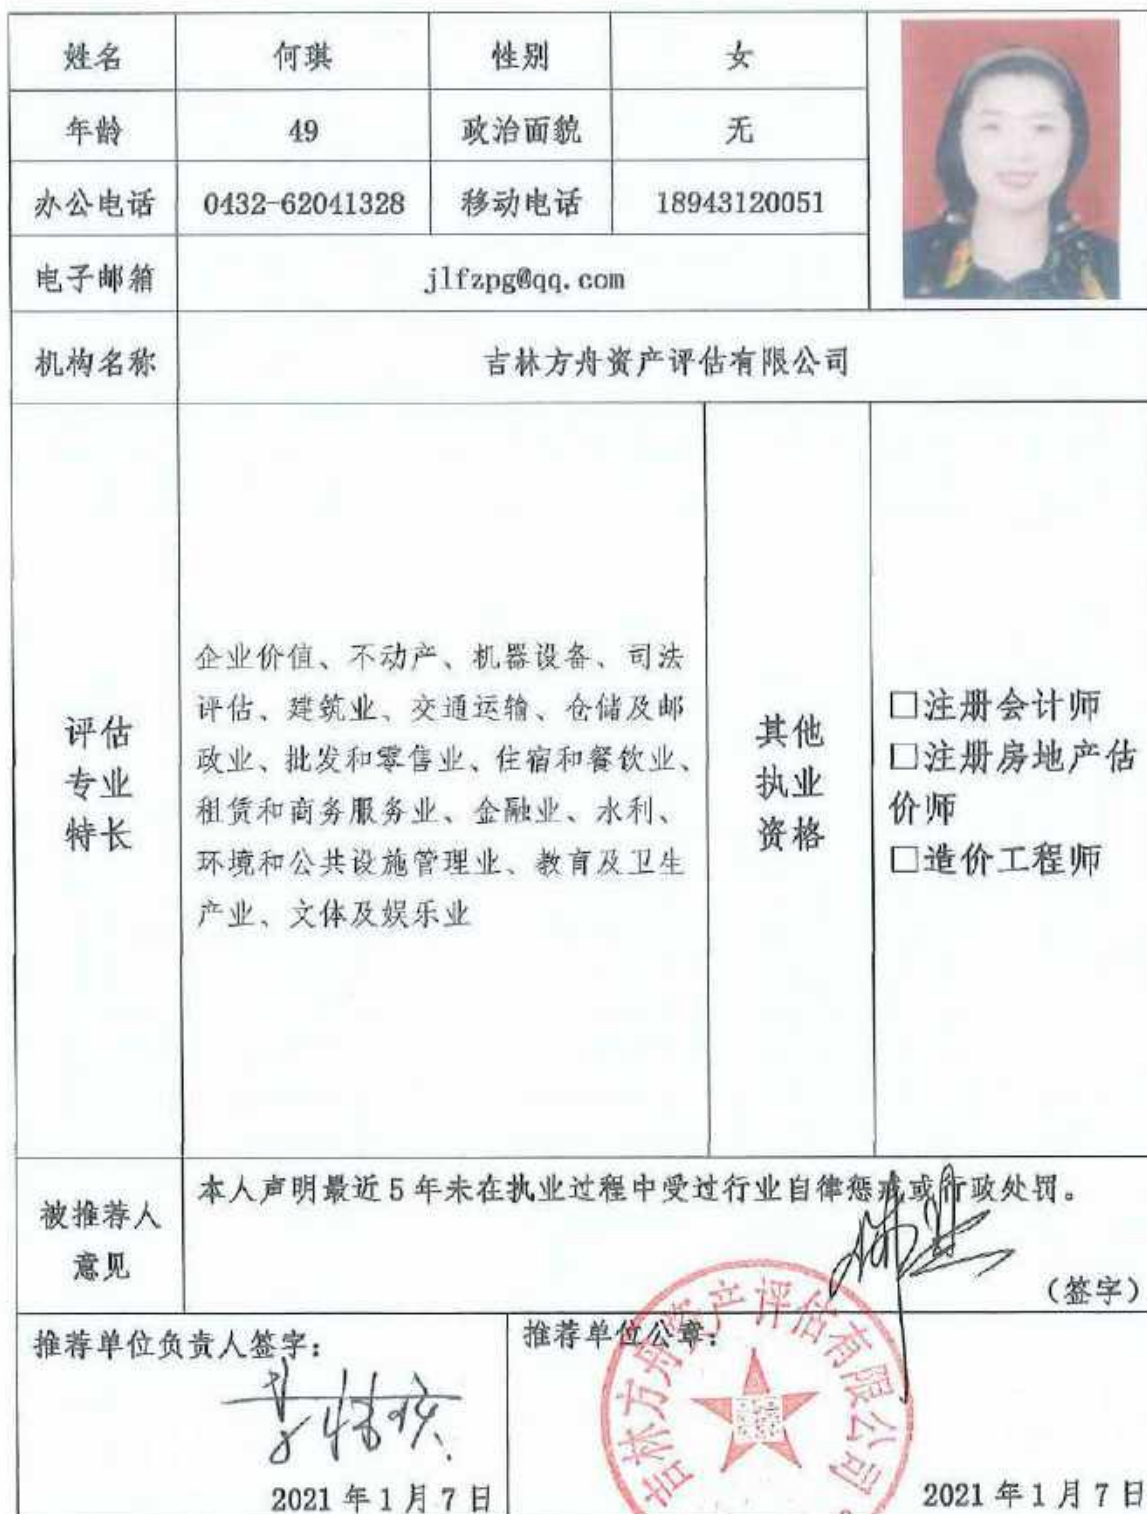 姓名 何琪 性别 女
年龄 49 政治面貌 无
办公电话 0432-62041328 移动电话 18943120051
电子邮箱 jlfzpg@qq.com
机构名称 吉林方舟资产评估有限公司
评估
专业
特长
企业价值、不动产、机器设备、司法
评估、建筑业、交通运输、仓储及邮
政业、批发和零售业、住宿和餐饮业、
租赁和商务服务业、金融业、水利、
环境和公共设施管理业、教育及卫生
产业、文体及娱乐业
其他
执业
资格
□注册会计师
□注册房地产估
价师
□造价工程师
被推荐人
意见
本人声明最近5年未在执业过程中受过行业自律惩戒或行政处罚。
（签字）
推荐单位负责人签字：
2021年1月7日
推荐单位公章：
吉林方舟资产评估有限公司
2021年1月7日